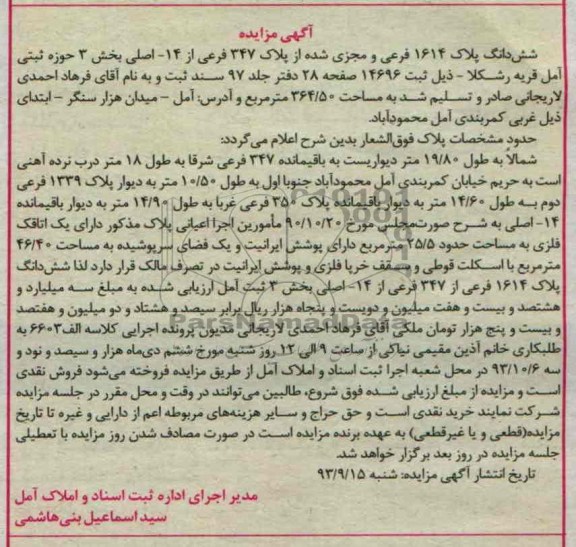 آگهی مزایده
شش‌دانگ پلاک ۱۶۱۴ فرعی و مجزی شده از پلاک ۳۴۷ فرعی از ۱۴- اصلی بخش ۳ حوزه ثبتی
آمل قریه رشکلا - ذیل ثبت ۱۴۶۹۶ صفحه ۲۸ دفتر جلد ۹۷ سند ثبت و به نام آقای فرهاد احمدی
لاریجانی صادر و تسلیم شد به مساحت ۳۶۴/۵۰ مترمربع و آدرس: آمل - میدان هزار سنگر - ابتدای
ذیل غربی کمربندی آمل محمودآباد.
حدود مشخصات پلاک فوق‌الشعار بدین شرح اعلام می‌گردد:
شمالا به طول ۱۹/۸۰ متر دیواریست به باقیمانده ۳۴۷ فرعی شرقا به طول ۱۸ متر درب نرده آهنی
است به حریم خیابان کمربندی آمل محمودآباد جنوبا اول به طول ۱۰/۵۰ متر به دیوار پلاک ۱۳۳۹ فرعی
دوم به طول ۱۴/۶۰ متر به دیوار باقیمانده پلاک ۳۵۰ فرعی غربا به طول ۱۴/۹۰ متر به دیوار باقیمانده
۱۴- اصلی به شرح صورت‌مجلس مورخ ۹۰/۱۰/۲۰ مأمورین اجرا اعیانی پلاک مذکور دارای یک اتاقک
فلزی به مساحت حدود ۲۵/۵ مترمربع دارای پوشش ایرانیت و یک فضای سرپوشیده به مساحت ۴۶/۴۰
مترمربع با اسکلت قوطی و سقف خرپا فلزی و پوشش ایرانیت در تصرف مالک قرار دارد لذا شش‌دانگ
پلاک ۱۶۱۴ فرعی از ۳۴۷ فرعی از ۱۴- اصلی بخش ۳ ثبت آمل ارزیابی شده به مبلغ سه میلیارد و
هشتصد و بیست و هفت میلیون و دویست و پنجاه هزار ریال برابر سیصد و هشتاد و دو میلیون و هفتصد
و بیست و پنج هزار تومان ملکی آقای فرهاد احمدی لاریجانی مدیون پرونده اجرایی کلاسه الف۶۶۰۳ به
طلبکاری خانم آذین مقیمی نیاکی از ساعت ۹ الی ۱۲ روز شنبه مورخ ششم دی‌ماه هزار و سیصد و نود و
سه ۹۳/۱۰/۶ در محل شعبه اجرا ثبت اسناد و املاک آمل از طریق مزایده فروخته می‌شود فروش نقدی
است و مزایده از مبلغ ارزیابی شده فوق شروع، طالبین می‌توانند در وقت و محل مقرر در جلسه مزایده
شرکت نمایند خرید نقدی است و حق حراج و سایر هزینه‌های مربوطه اعم از دارایی و غیره تا تاریخ
مزایده(قطعی و یا غیرقطعی) به عهده برنده مزایده است در صورت مصادف شدن روز مزایده با تعطیلی
جلسه مزایده در روز بعد برگزار خواهد شد.
تاریخ انتشار آگهی مزایده: شنبه ۹۳/۹/۱۵
مدیر اجرای اداره ثبت اسناد و املاک آمل
سید اسماعیل بنی‌هاشمی